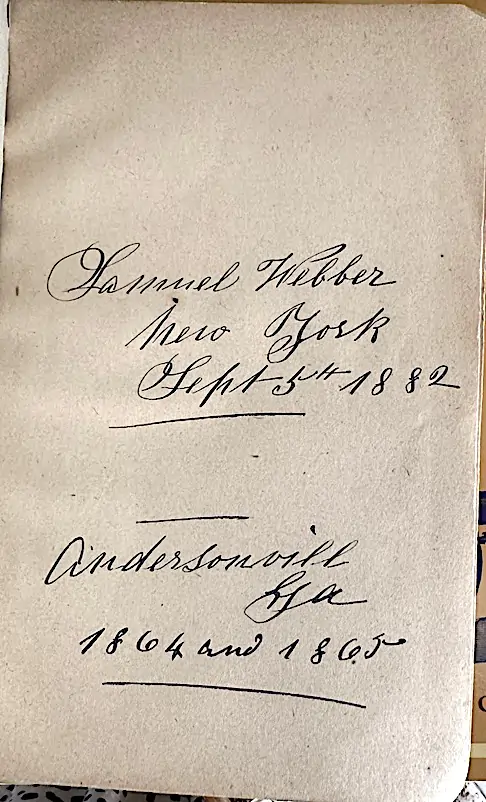 Samuel Webber
New York
Sept 5th 1882
Andersonvill
Ga
1864 and 1865